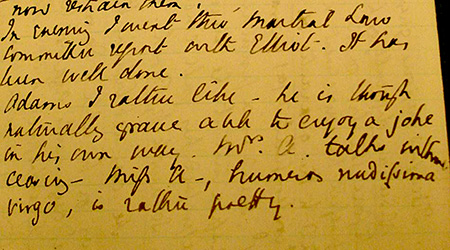 now remain them.
In evening I went thro' Martial Law
Committee report with Elliot. It has
been well done.
Adams I rather like – he is though
naturally grave able to enjoy a joke
in his own way. Mrs. A. talks without
ceasing – Miss A –, humeros nudissima
virgo, is rather pretty.